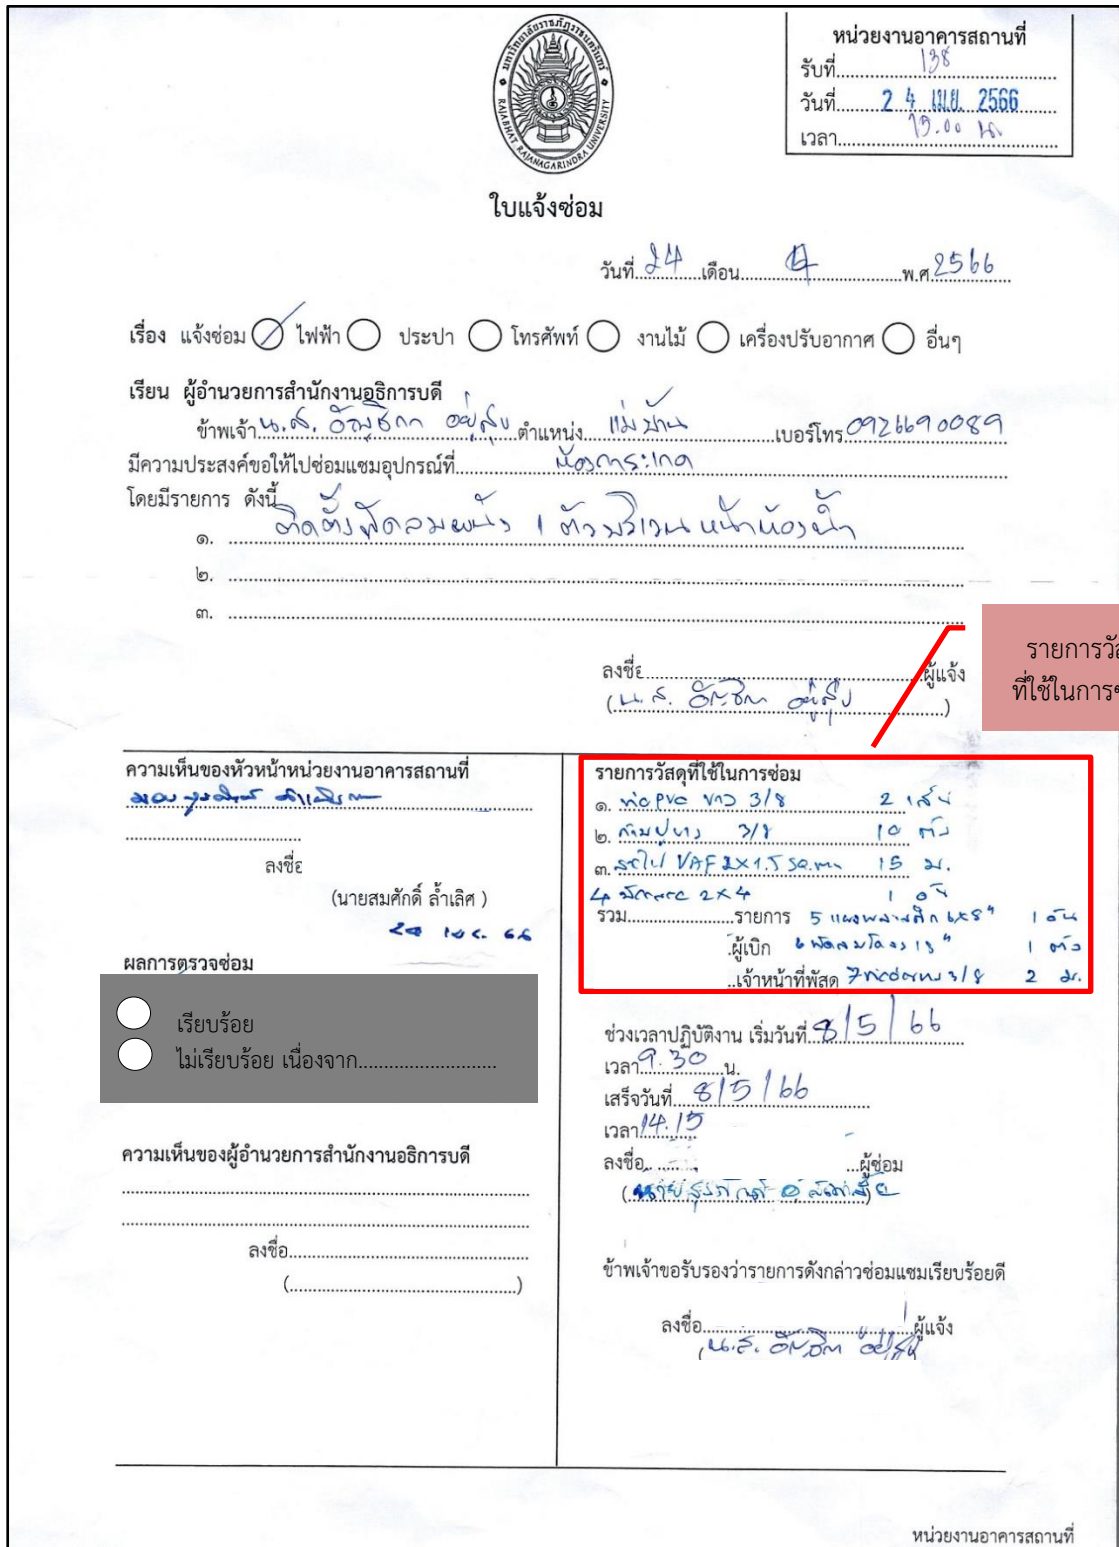 มหาวิทยาลัยราชภัฏราชนครินทร์
RAJABHAT RAJANAGARINDRA UNIVERSITY
หน่วยงานอาคารสถานที่
รับที่ 138
วันที่ 2 4 เม.ย. 2566
เวลา 13.00 น.
ใบแจ้งซ่อม
วันที่ 24 เดือน 4 พ.ศ 2566
เรื่อง แจ้งซ่อม ไฟฟ้า ประปา โทรศัพท์ งานไม้ เครื่องปรับอากาศ อื่นๆ
เรียน ผู้อำนวยการสำนักงานอธิการบดี
ข้าพเจ้า น.ส. อยู่สุข ตำแหน่ง แม่บ้าน เบอร์โทร 0926690089
มีความประสงค์ขอให้ไปซ่อมแซมอุปกรณ์ที่ ห้องการะเกด
โดยมีรายการ ดังนี้
๑. ติดตั้งพัดลมผนัง 1 ตัว บริเวณ หน้าห้องน้ำ
๒.
๓.
รายการวัส
ที่ใช้ในการซ
ลงชื่อ ผู้แจ้ง
(น.ส. อยู่สุข)
ความเห็นของหัวหน้าหน่วยงานอาคารสถานที่
มอบ
ลงชื่อ
(นายสมศักดิ์ ล้ำเลิศ )
ผลการตรวจซ่อม
เรียบร้อย
ไม่เรียบร้อย เนื่องจาก
ความเห็นของผู้อำนวยการสำนักงานอธิการบดี
ลงชื่อ
(
)
รายการวัสดุที่ใช้ในการซ่อม
๑. ท่อ PVC ขาว 3/8 2 เส้น
๒. ก้ามปู ขาว 3/8 10 ตัว
๓. สายไฟ VAF 2×1.5 sq.mm 15 ม.
4 2×4 1 อัน
รวม รายการ 5 แผงพลาสติก 6×8" 1 อัน
ผู้เบิก 6 พัดลมโคจร 1 ตัว
เจ้าหน้าที่พัสดุ 7 3/8 2 ม.
ช่วงเวลาปฏิบัติงาน เริ่มวันที่ 8/5/66
เวลา 9.30 น.
เสร็จวันที่ 8/5/66
เวลา 14.15
ลงชื่อ ผู้ซ่อม
(นาย
ข้าพเจ้าขอรับรองว่ารายการดังกล่าวซ่อมแซมเรียบร้อยดี
ลงชื่อ ผู้แจ้ง
(น.ส. อยู่สุข
หน่วยงานอาคารสถานที่